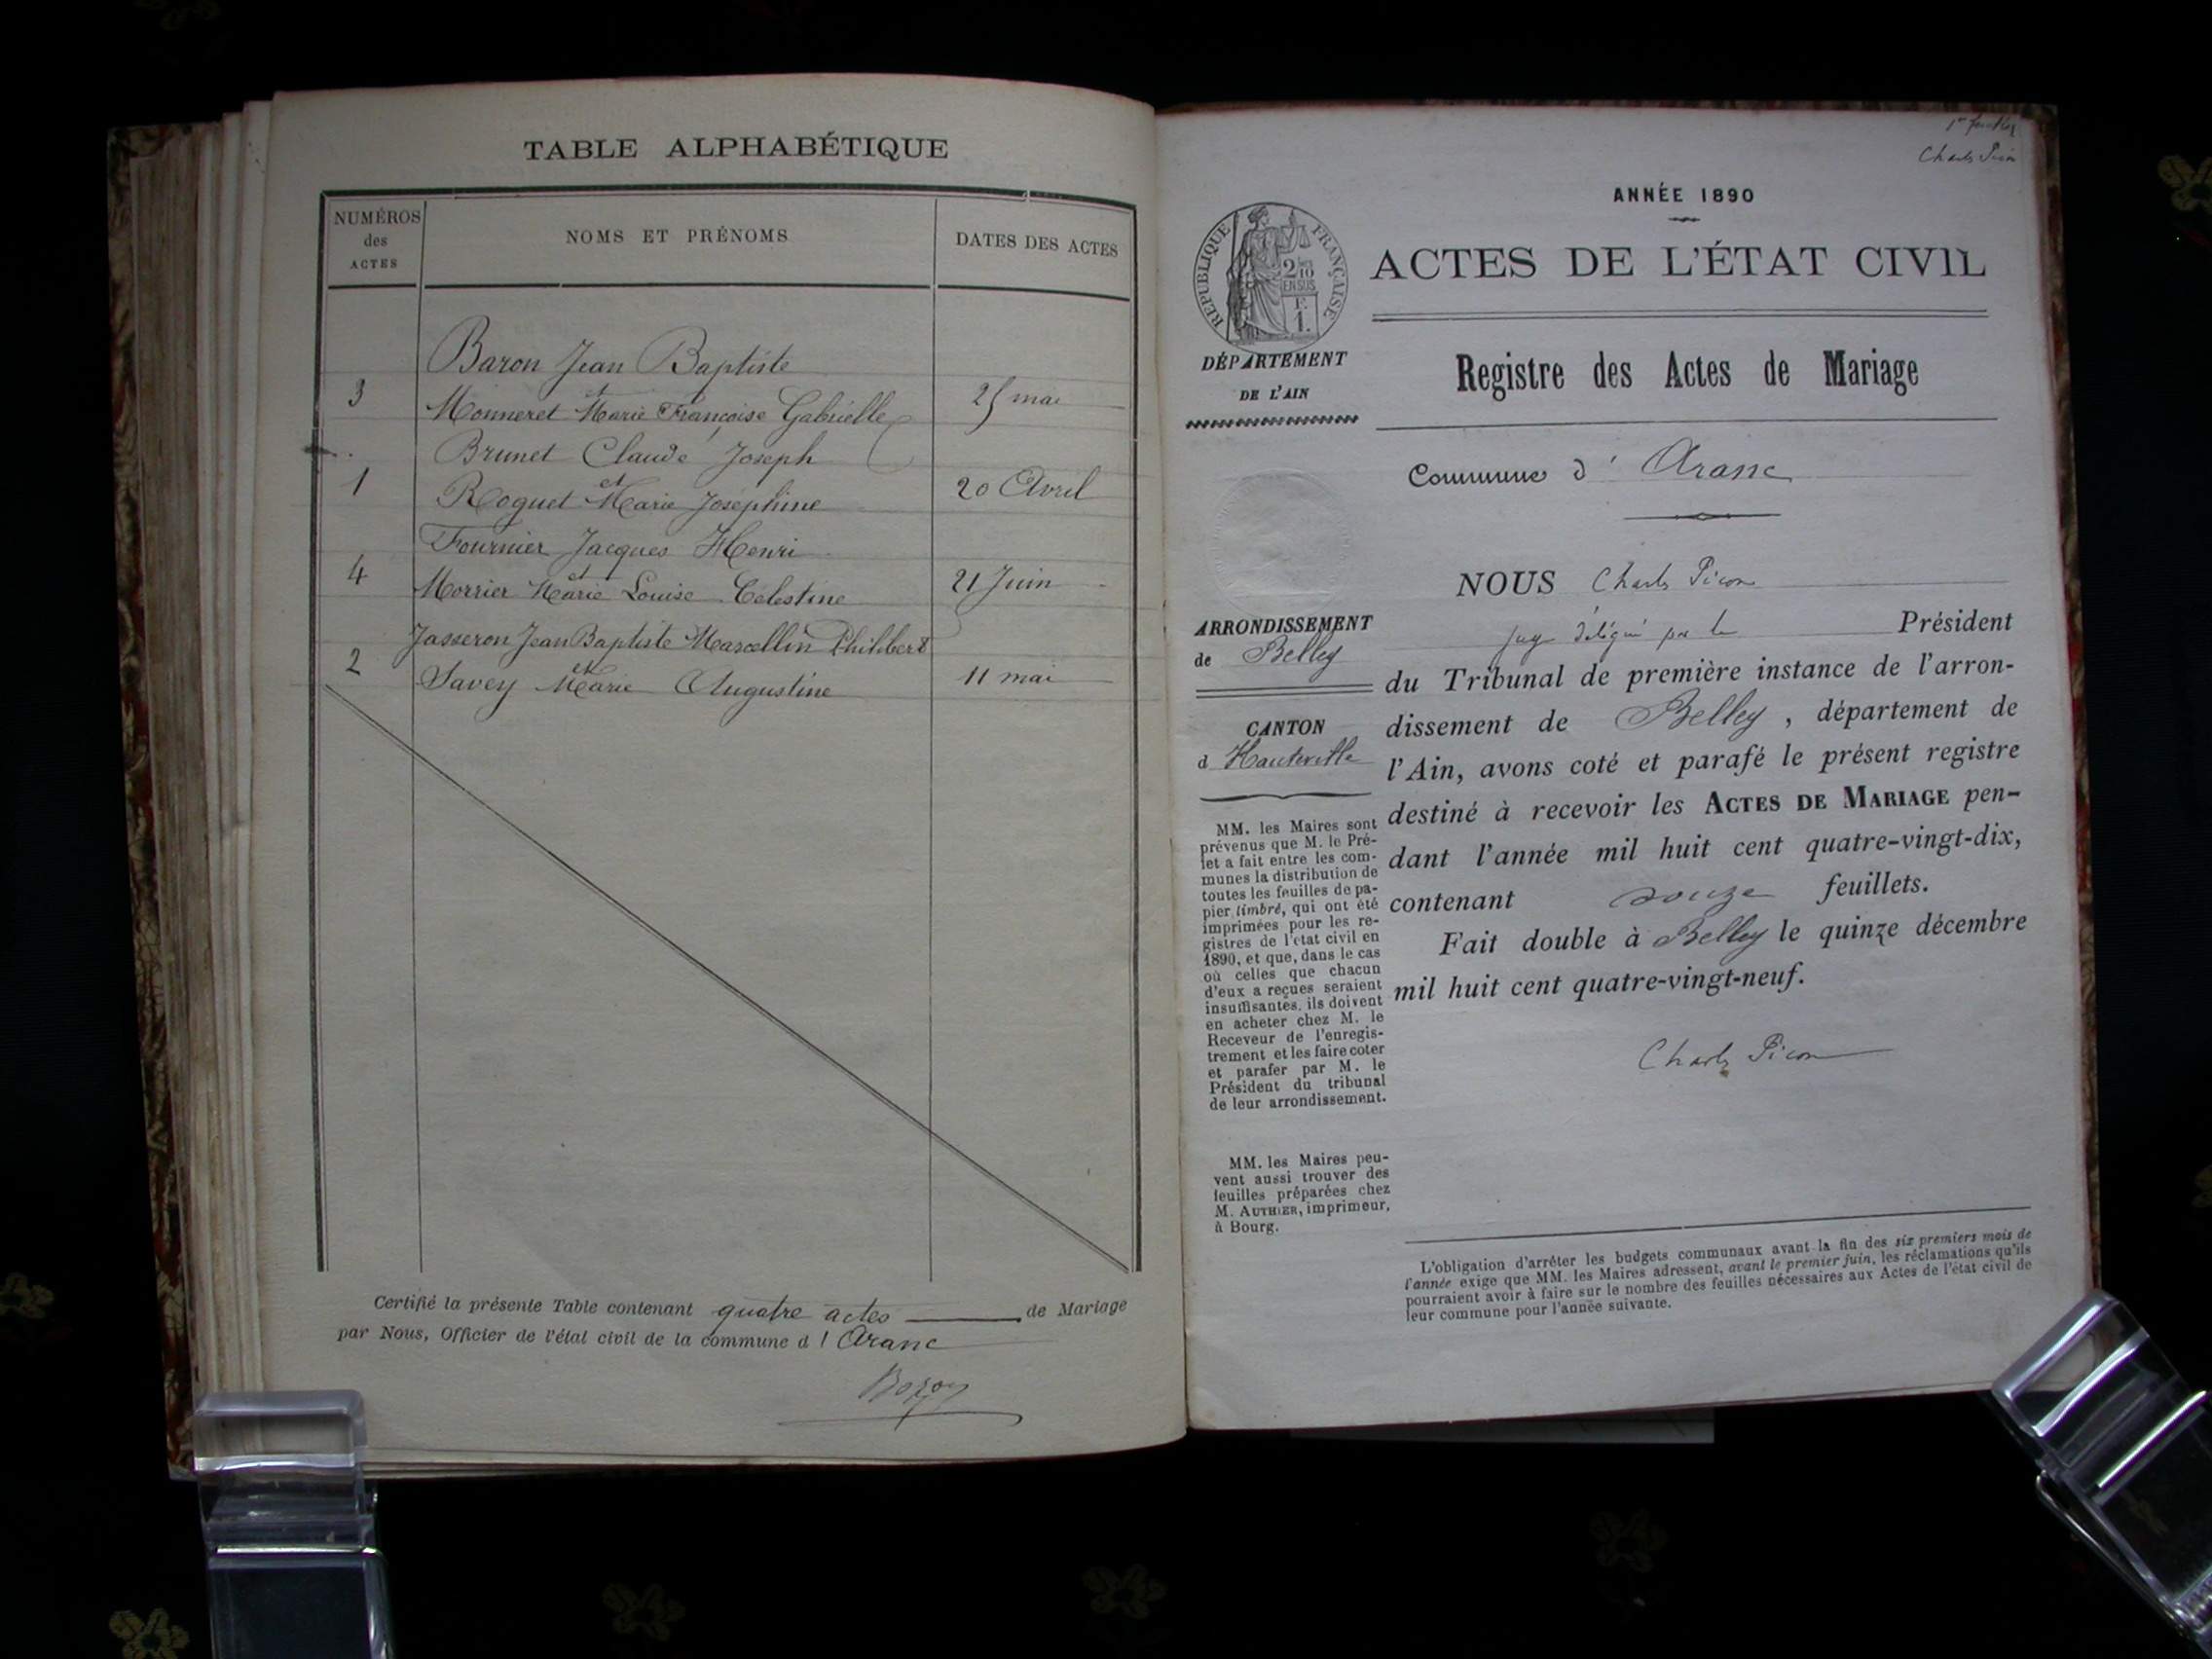 TABLE ALPHABÉTIQUE
NUMÉROS
des
ACTES
NOMS ET PRÉNOMS
DATES DES ACTES
Baron Jean Baptiste
et
3 Monneret Marie Françoise Gabrielle 25 mai
Brunet Claude Joseph
et
1 Roguet Marie Joséphine 20 Avril
Fournier Jacques Henri
et
4 Morrier Marie Louise Célestine 21 Juin
Jasseron Jean Baptiste Marcellin Philibert
et
2 Savey Marie Augustine 11 mai
Certifié la présente Table contenant quatre actes de Mariage
par Nous, Officier de l'état civil de la commune d' Aranc
Bozon
1er feuillet
Charles Picon
ANNÉE 1890
ACTES DE L'ÉTAT CIVIL
RÉPUBLIQUE FRANÇAISE
2/10
EN SUS
F.
1.
DÉPARTEMENT
DE L'AIN
Registre des Actes de Mariage
Commune d' Aranc
ARRONDISSEMENT
de Belley
CANTON
d Hauteville
MM. les Maires sont
prévenus que M. le Pré-
fet a fait entre les com-
munes la distribution de
toutes les feuilles de pa-
pier timbré, qui ont été
imprimées pour les re-
gistres de l'état civil en
1890, et que, dans le cas
où celles que chacun
d'eux a reçues seraient
insuffisantes, ils doivent
en acheter chez M. le
Receveur de l'enregis-
trement et les faire coter
et parafer par M. le
Président du tribunal
de leur arrondissement.
MM. les Maires peu-
vent aussi trouver des
feuilles préparées chez
M. AUTHIER, imprimeur,
à Bourg.
NOUS Charles Picon
juge délégué par le Président
du Tribunal de première instance de l'arron-
dissement de Belley, département de
l'Ain, avons coté et parafé le présent registre
destiné à recevoir les ACTES DE MARIAGE pen-
dant l'année mil huit cent quatre-vingt-dix,
contenant douze feuillets.
Fait double à Belley le quinze décembre
mil huit cent quatre-vingt-neuf.
Charles Picon
L'obligation d'arrêter les budgets communaux avant la fin des six premiers mois de
l'année exige que MM. les Maires adressent, avant le premier juin, les réclamations qu'ils
pourraient avoir à faire sur le nombre des feuilles nécessaires aux Actes de l'état civil de
leur commune pour l'année suivante.